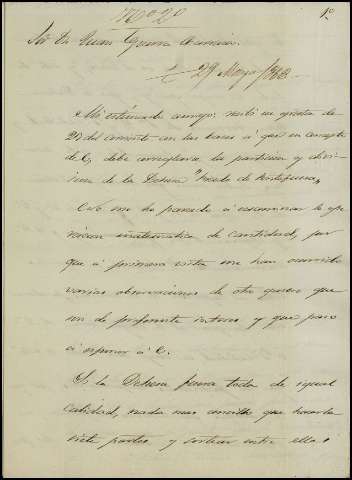 Nº 20
1º
Sor Dn Juan Guerra
29 Mayo/868
Mi estimado amigo: recibí su grata de
25 del corriente con las bases á que en concepto
de V. debe arreglarse la particion y divi-
sion de la Dehesa
No me he parado á examinar la ope-
racion matematica de cantidad, por
que á primera vista me han ocurrido
varias observaciones de otro genero que
son de preferente interes y que paso
á esponer á V.
Si la Dehesa fuera toda de igual
calidad, nada mas sencillo que hacerla
siete partes, y sortear entre ellas